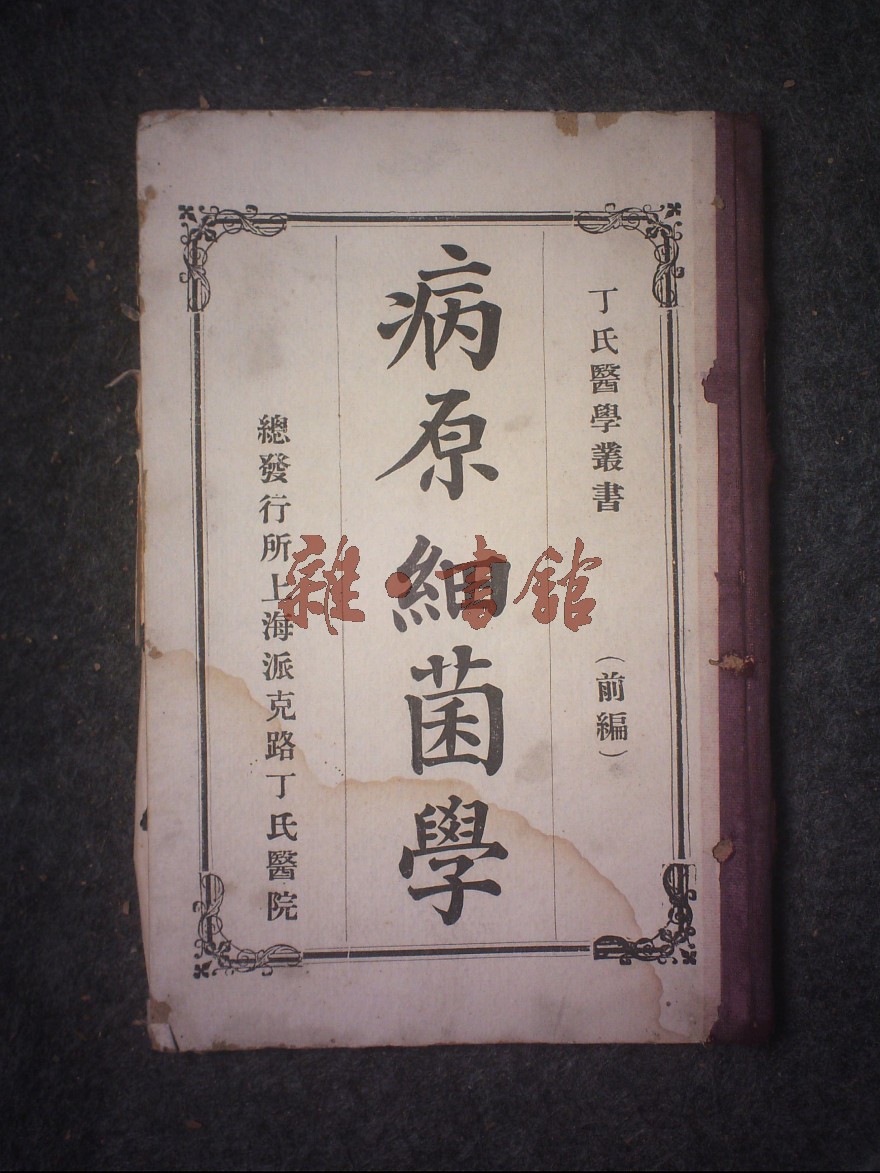 丁氏醫學叢書
（前編）
病原細菌學
總發行所上海派克路丁氏醫院
雜·書館